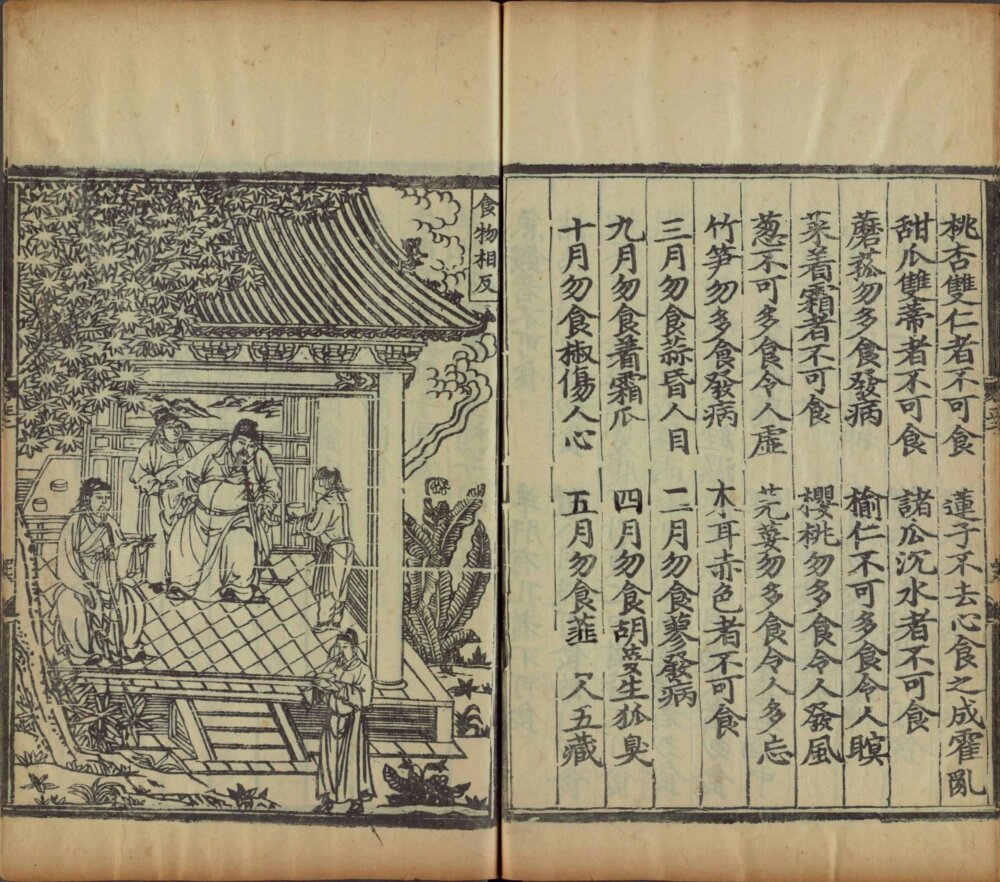 桃杏雙仁者不可食　蓮子不去心食之成霍亂
甜瓜雙蒂者不可食　諸瓜沉水者不可食
蘑菰勿多食發病　榆仁不可多食令人瞑
菜着霜者不可食　櫻桃勿多食令人發風
葱不可多食令人虛　芫荽勿多食令人多忘
竹笋勿多食發病　木耳赤色者不可食
三月勿食蒜昏人目　二月勿食蓼發病
九月勿食着霜瓜　四月勿食胡荽生狐臭
十月勿食椒傷人心　五月勿食韮　人五藏
食物相反